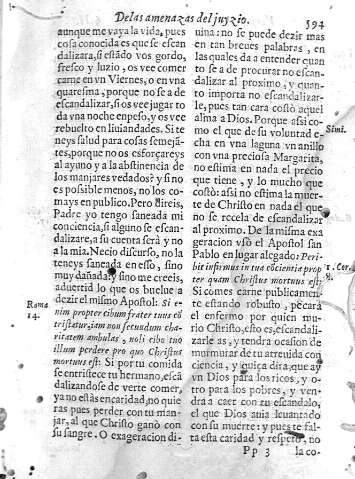 Delas amenazas del juyzio. 594
aunque me vaya la vida, pues
cosa conocida es que se escan
dalizara, si estādo vos gordo,
fresco y luzio, os vee comer
carne en vn Viernes, o en vna
quaresma, porque no se a de
escandalizar, si os vee jugar to
da vna noche en peso, y os vee
rebuelto en liuiandades. Si te
neys salud para cosas semejā-
tes, porque no os esforçareys
al ayuno y a la abstinencia de
los manjares vedados? y si no
es possible menos, no los co-
mays en publico. Pero direis,
Padre yo tengo saneada mi
conciencia, si alguno se escan-
dalizare, a su cuenta será y no
a la mia. Necio discurso, no la
teneys saneada en esso, sino
muy dañada: y sino me creeis,
aduertid lo que os buelue a
dezir el mismo Apostol: Si e-
Roma
14.
nim propter cibum frater tuus cō
tristatur, iam non secundum cha-
ritatem ambulas, noli cibo tuo
illum perdere pro quo Christus
mortuus est: Si por tu comida
se entristece tu hermano, escā
dalizandose de verte comer,
ya no estàs en caridad, no quie
ras pues perder con tu man-
jar, al que Christo ganò con
su sangre. O exageracion di-
uina: no se puede dezir mas
en tan breues palabras, en
las quales da a entender quan
to se a de procurar no escan-
dalizar al proximo, y quan-
to importa no escandalizar-
le, pues tan cara costò aquel
alma a Dios. Porque assi co-
mo el que de su voluntad e-
Simi.
cha en vna laguna vn anillo
con vna preciosa Margarita,
no estima en nada el precio
que tiene, y lo mucho que
costò: assi no estima la muer-
te de Christo en nada el que
no se recela de escandalizar
al proximo. De la misma exa
geracion vsò el Apostol san
Pablo en lugar alegado: Peri-
1. Cor.
bit infirmus in tua cōscientia prop
ter quem Christus mortuus est:
Si comes carne publicamen-
te estando robusto, pecarà
el enfermo por quien mu-
rio Christo, esto es, escandali-
zarle as, y tendra ocasion de
murmurar de tu atreuida con
ciencia, y quiça dira, que ay
vn Dios para los ricos, y o-
tro para los pobres, y ven-
dra a caer con tu escandalo,
el que Dios auia leuantado
con su muerte: y pues te fal-
ta esta caridad y respeto, no
Pp 3 la co-